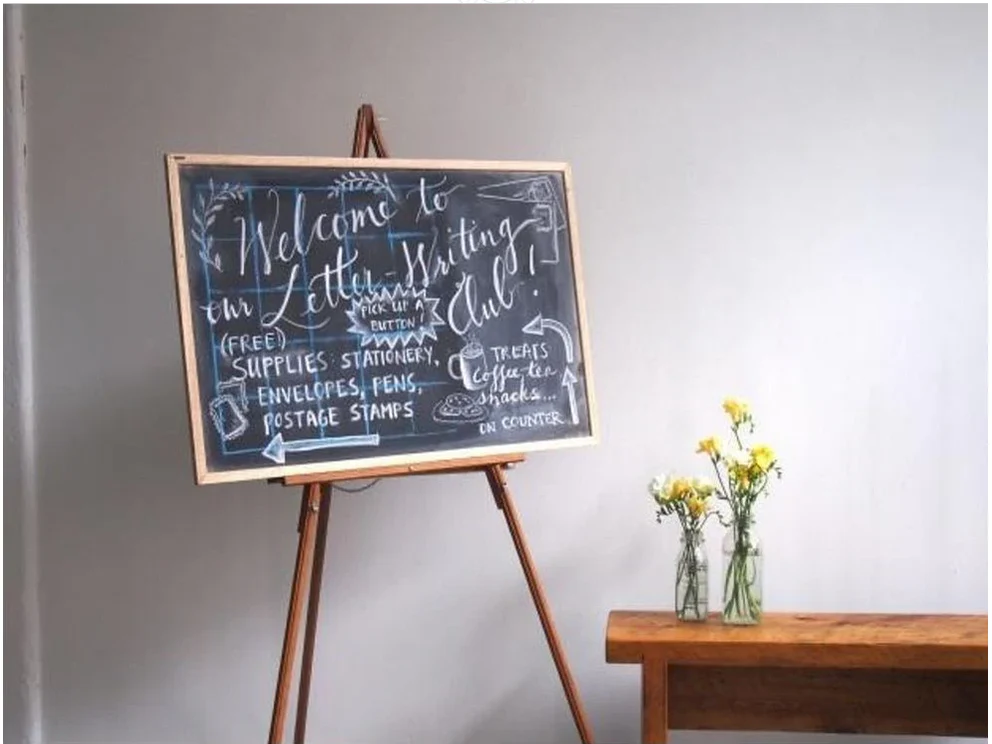 Welcome to
our Letter-Writing
Club!
PICK UP A
BUTTON!
(FREE!)
SUPPLIES: STATIONERY,
ENVELOPES, PENS,
POSTAGE STAMPS
TREATS
Coffee-tea
snacks...
ON COUNTER